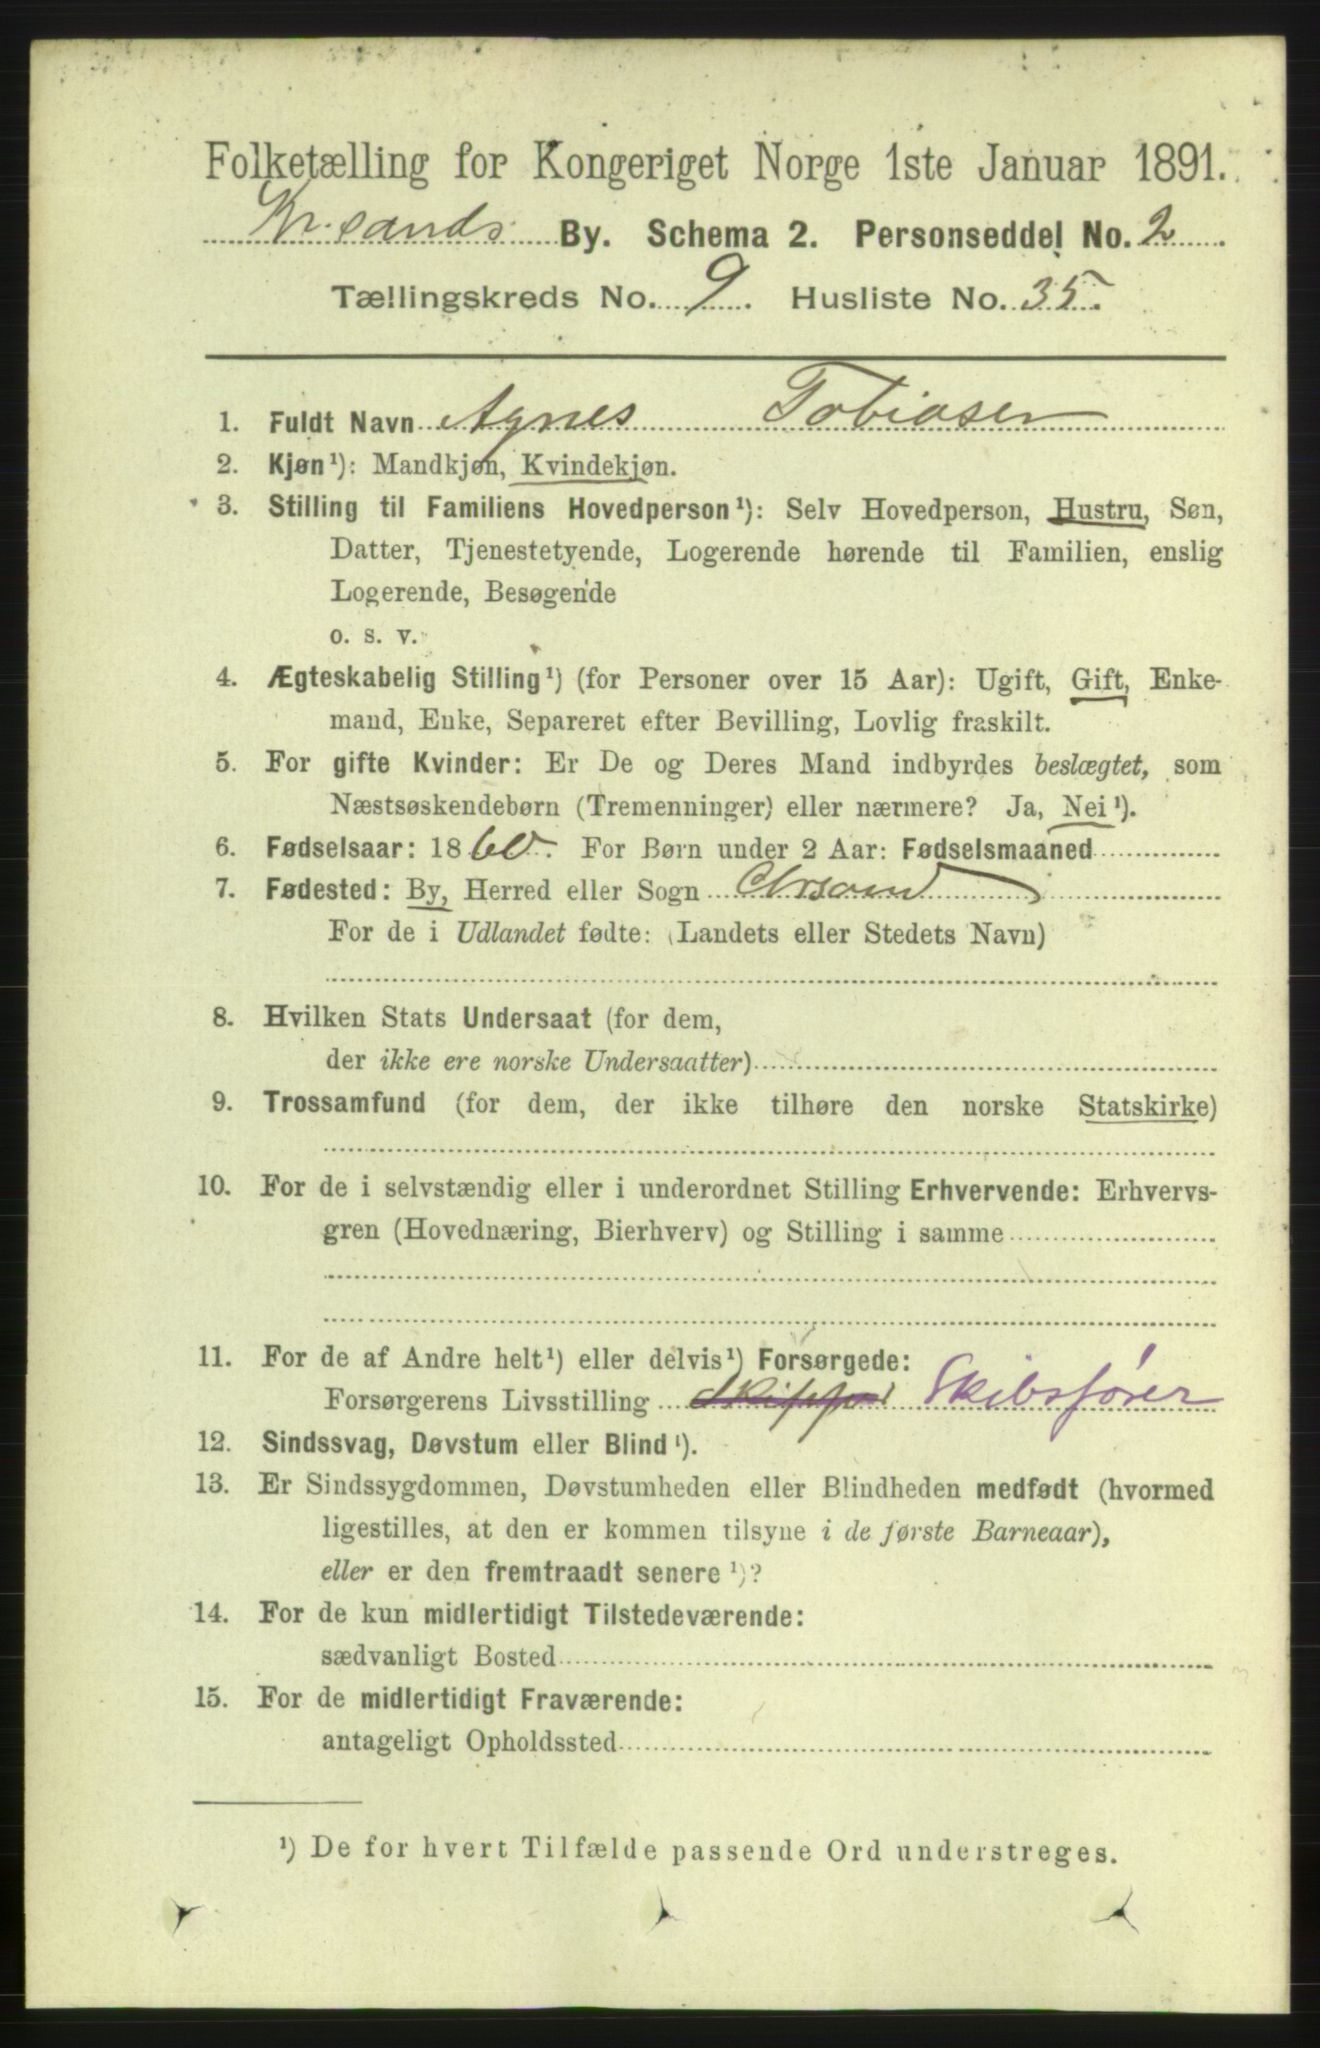 Folketælling for Kongeriget Norge 1ste Januar 1891.
Kr.sands By. Schema 2. Personseddel No. 2
Tællingskreds No. 9. Husliste No. 35.
1. Fuldt Navn Agnes Tobiasen
2. Kjøn¹): Mandkjøn, Kvindekjøn.
3. Stilling til Familiens Hovedperson¹): Selv Hovedperson, Hustru, Søn,
Datter, Tjenestetyende, Logerende hørende til Familien, enslig
Logerende, Besøgende
o. s. v.
4. Ægteskabelig Stilling¹) (for Personer over 15 Aar): Ugift, Gift, Enke-
mand, Enke, Separeret efter Bevilling, Lovlig fraskilt.
5. For gifte Kvinder: Er De og Deres Mand indbyrdes beslægtet, som
Næstsøskendebørn (Tremenninger) eller nærmere? Ja, Nei¹).
6. Fødselsaar: 1860. For Børn under 2 Aar: Fødselsmaaned
7. Fødested: By, Herred eller Sogn Chrsand
For de i Udlandet fødte: (Landets eller Stedets Navn)
8. Hvilken Stats Undersaat (for dem,
der ikke ere norske Undersaatter)
9. Trossamfund (for dem, der ikke tilhøre den norske Statskirke)
10. For de i selvstændig eller i underordnet Stilling Erhvervende: Erhvervs-
gren (Hovednæring, Bierhverv) og Stilling i samme
11. For de af Andre helt¹) eller delvis¹) Forsørgede:
Forsørgerens Livsstilling Skibsfører
12. Sindssvag, Døvstum eller Blind¹).
13. Er Sindssygdommen, Døvstumheden eller Blindheden medfødt (hvormed
ligestilles, at den er kommen tilsyne i de første Barneaar),
eller er den fremtraadt senere¹)?
14. For de kun midlertidigt Tilstedeværende:
sædvanligt Bosted
15. For de midlertidigt Fraværende:
antageligt Opholdssted
¹) De for hvert Tilfælde passende Ord understreges.